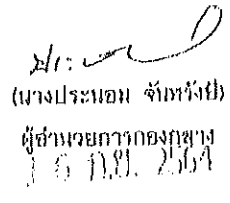 (นางประนอม จันทรังษี)
ผู้อำนวยการกองกลาง
16 ก.ย. 2564